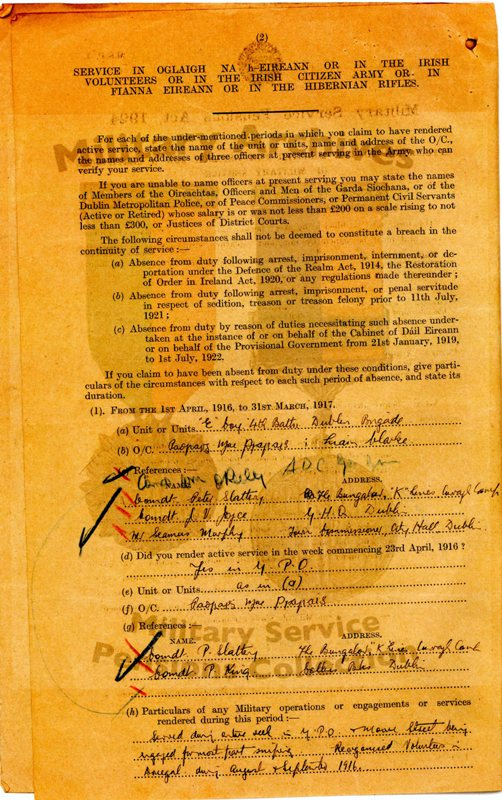 (2)
SERVICE IN OGLAIGH NA h-EIREANN OR IN THE IRISH
VOLUNTEERS OR IN THE IRISH CITIZEN ARMY OR IN
FIANNA EIREANN OR IN THE HIBERNIAN RIFLES.
For each of the under-mentioned periods in which you claim to have rendered
active service, state the name of the unit or units, name and address of the O/C.,
the names and addresses of three officers at present serving in the Army who can
verify your service.
If you are unable to name officers at present serving you may state the names
of Members of the Oireachtas, Officers and Men of the Garda Siochana, or of the
Dublin Metropolitan Police, or of Peace Commissioners, or Permanent Civil Servants
(Active or Retired) whose salary is or was not less than £200 on a scale rising to not
less than £300, or Justices of District Courts.
The following circumstances shall not be deemed to constitute a breach in the
continuity of service :—
(a) Absence from duty following arrest, imprisonment, internment, or de-
portation under the Defence of the Realm Act, 1914, the Restoration
of Order in Ireland Act, 1920, or any regulations made thereunder ;
(b) Absence from duty following arrest, imprisonment, or penal servitude
in respect of sedition, treason or treason felony prior to 11th July,
1921 ;
(c) Absence from duty by reason of duties necessitating such absence under-
taken at the instance of or on behalf of the Cabinet of Dáil Eireann
or on behalf of the Provisional Government from 21st January, 1919,
to 1st July, 1922.
If you claim to have been absent from duty under these conditions, give parti-
culars of the circumstances with respect to each such period of absence, and state its
duration.
(1). FROM THE 1ST APRIL, 1916, TO 31ST MARCH, 1917.
(a) Unit or Units "E" Coy 4th Battn Dublin Brigade
(b) O/C. Padraig Mac Piarais & Liam Clarke
(c) References :— ADC
NAME. ADDRESS.
Comdt Peter Slattery Bungalow, "K" Lines Curragh Camp
Comdt J. V. Joyce G.H.Q. Dublin
Mr Seamus Murphy Town Commissioner City Hall Dublin
(d) Did you render active service in the week commencing 23rd April, 1916 ?
Yes in G.P.O.
(e) Unit or Units as in (a)
(f) O/C. Padraig Mac Piarais
(g) References :—
NAME. ADDRESS.
Comdt P. Slattery Bungalow, "K" Lines Curragh Camp
Comdt P. King Dublin
(h) Particulars of any Military operations or engagements or services
rendered during this period :—
Served during entire week in G.P.O & Moore Street being
engaged for most part sniping Reorganised Volunteers in
Donegal during August & September 1916.